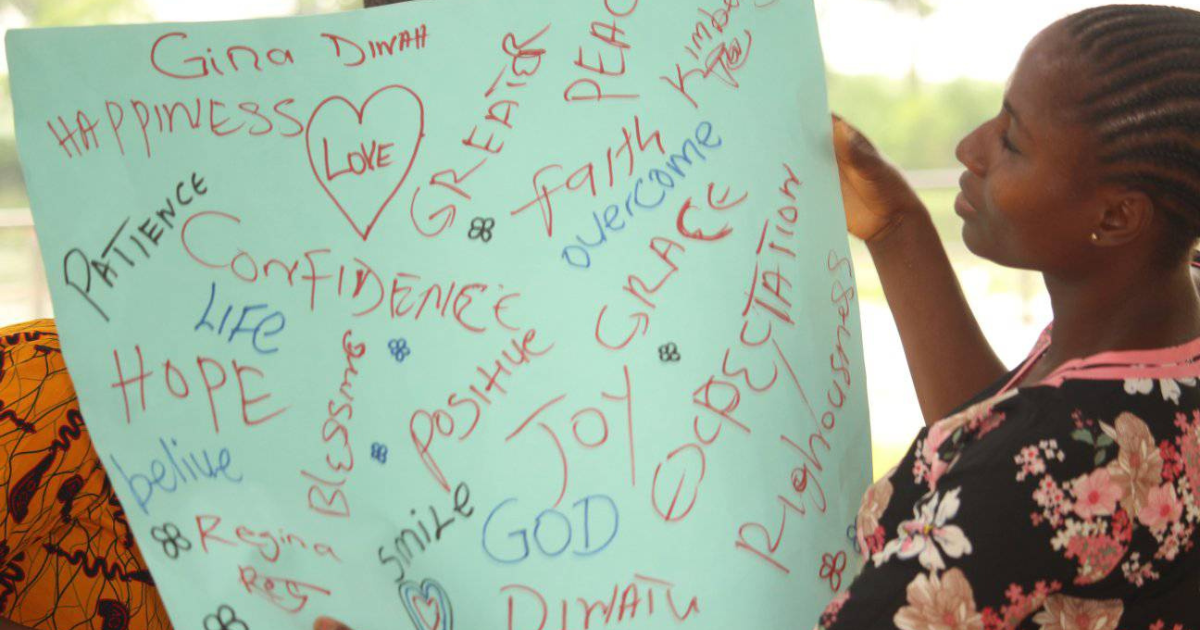 Gina DINAH
HAPPINESS
LOVE
GREATER
PEAC
Kimbe
PATIENCE
CONFIDENCE
Faith
overcome
GRACE
LIFE
HOPE
Blessing
POSITIVE
JOY
EXCPECTATION
Righousness
belive
Regina
SMILE
GOD
DINAH